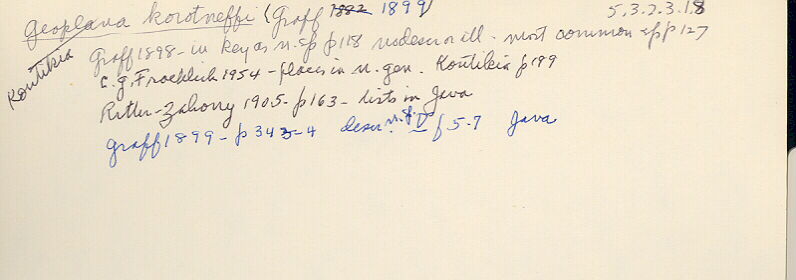 Geoplana korotneffi (Graff 1882 1899) 5.3.2.3.18
Kontikia
Graff 1898 - in key as n.sp p118 no descr or ill. most common spp p127
C.G. Froehlich 1954 - places in n. gen. Kontikia p199
Ritter-Zahony 1905 - p163 - lists in Java
Graff 1899 - p 343-4 descr. n.sp. V f 5-7 Java